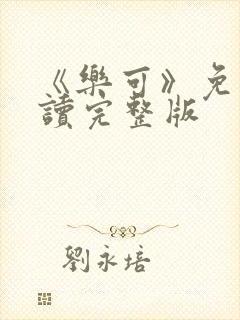 《樂可》免
讀完整版
劉永培